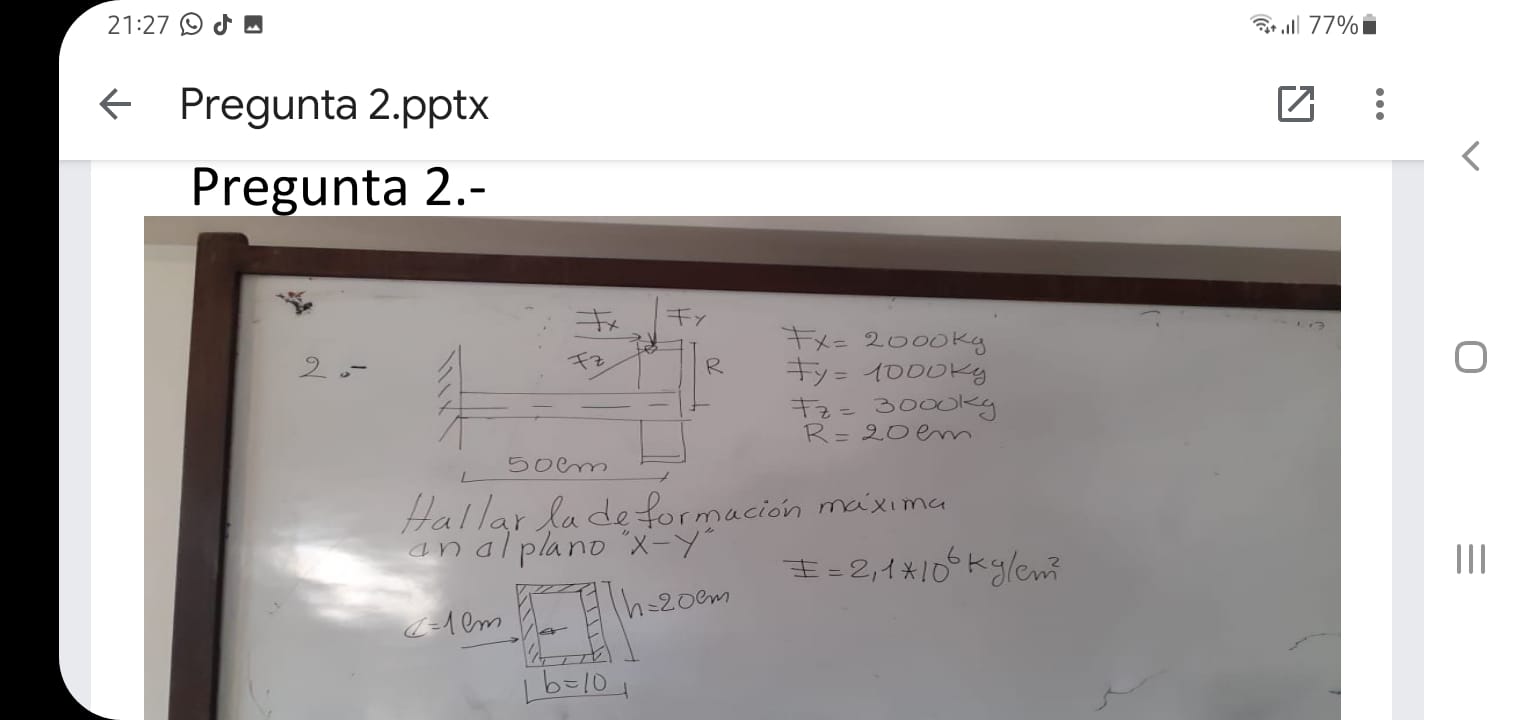 21:27
77%
Pregunta 2.pptx
Pregunta 2.-
Fx
Fy
2.-
Fz
R
Fx= 2000Kg
Fy= 1000Kg
Fz= 3000Kg
R= 20cm
50cm
Hallar la deformación máxima
an al plano "x-y"
E=2,1*10⁶Kg/cm²
h=20cm
=1cm
b=10